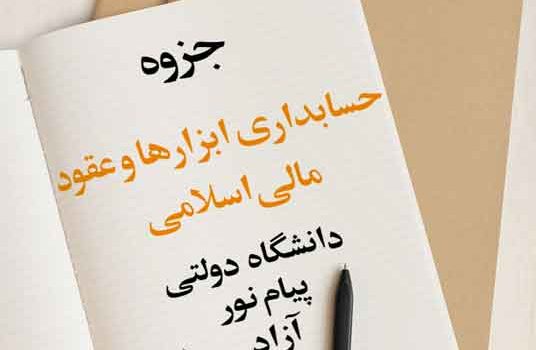 جزوه
حسابداری ابزارها و عقود
مالی اسلامی
دانشگاه دولتی
پیام نور
آزاد